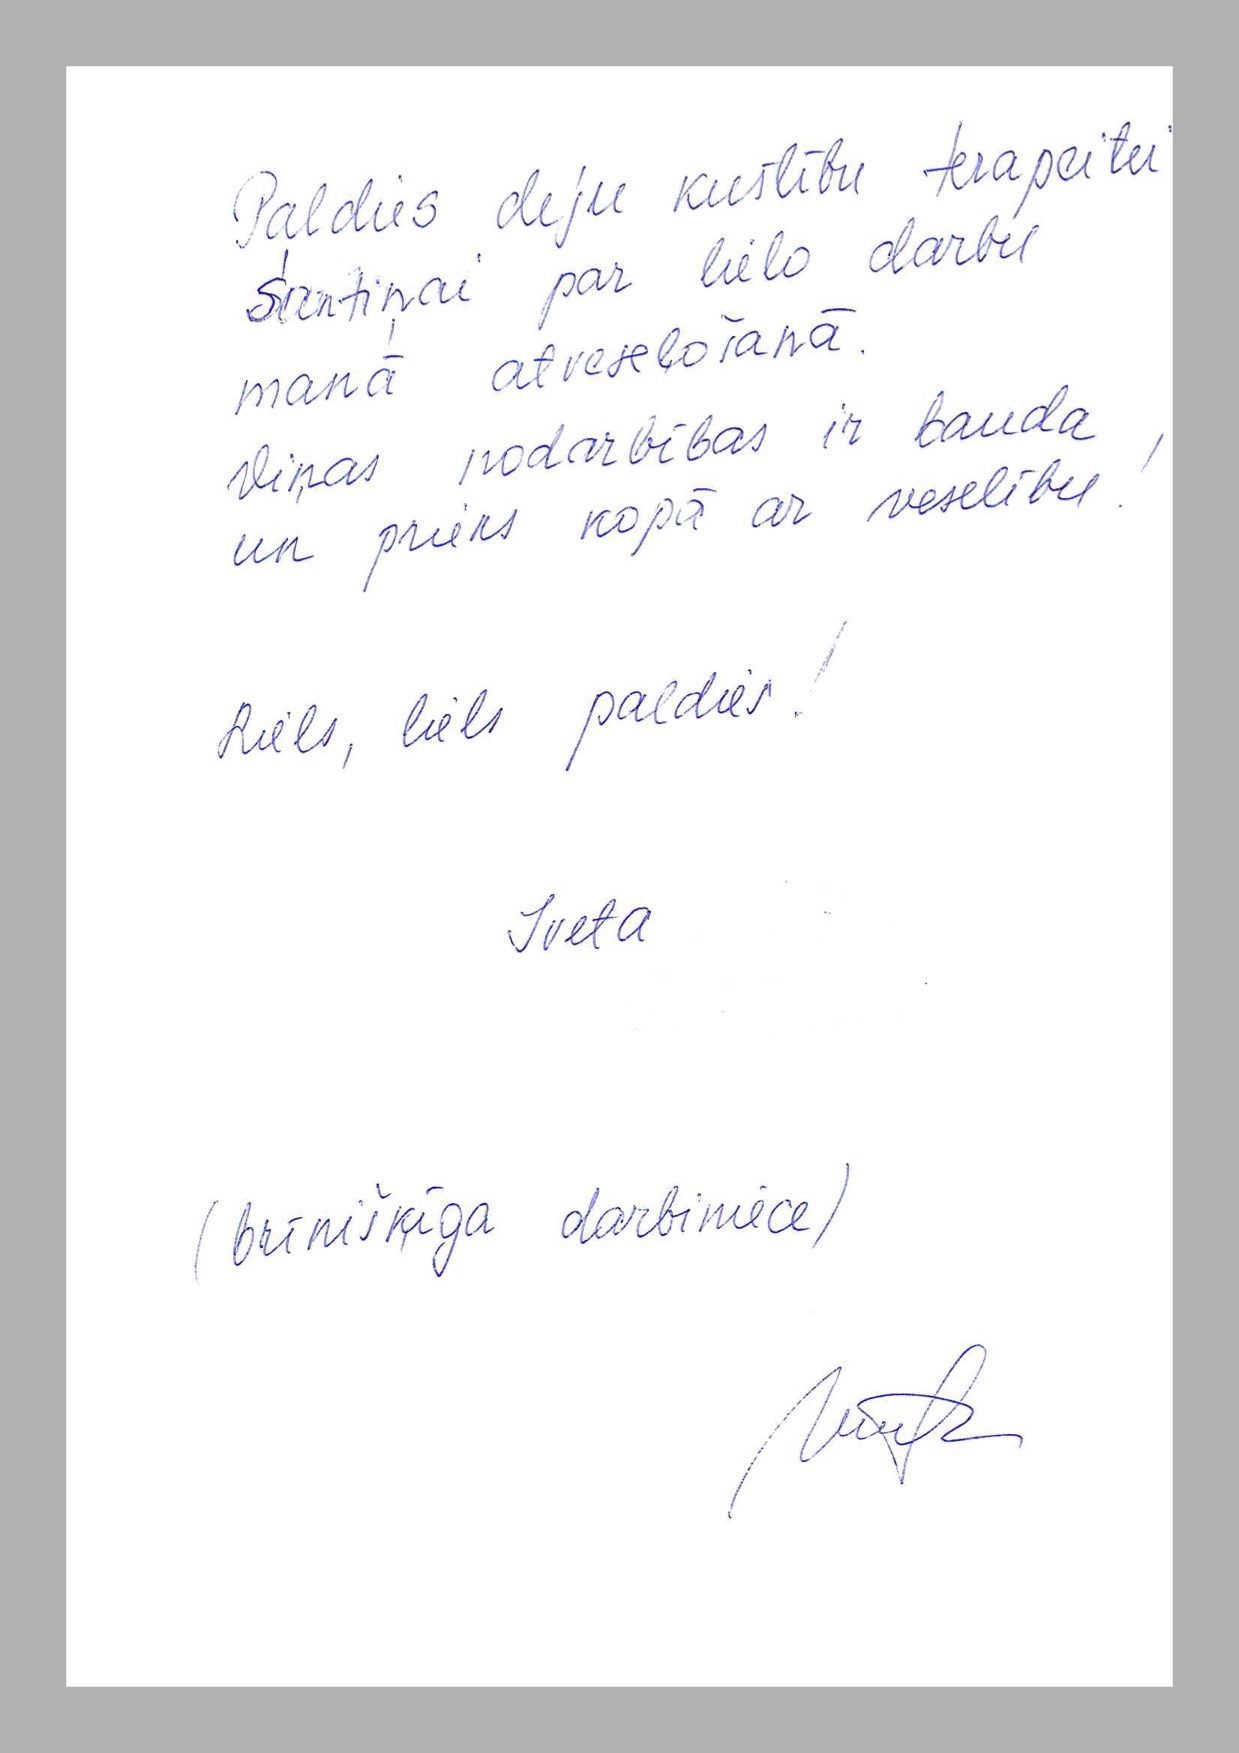 Paldies deju kustību terapeitei
par lielo darbu
manā atveseļošanā.
Viņas nodarbības ir bauda
un prieks kopā ar veselību!
Liels, liels paldies!
Iveta
(brīnišķīga darbiniece)